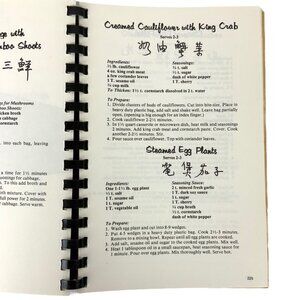 ge with
boo Shoots
三鮮
s for Mushrooms
boo Shoots:
chicken broth
cabbage
cornstarch
into each bag, leaving
time for 1½ minutes
to add broth and
and mixture. Cover with
full power for 2 minutes.
cabbage. Serve warm.
Creamed Cauliflower with King Crab
Serves 2-3
奶油蟹菜
Ingredients:
½ lb. cauliflower
4 oz. king crab meat
a few coriander leaves
2 T. sesame oil
¾ cup milk
Seasonings:
½ t. salt
¼ t. sugar
dash of white pepper
1 t. sherry
To Thicken: 1½ t. cornstarch dissolved in 2 t. water
To Prepare:
1. Divide clusters of heads of cauliflower. Cut into bite-size. Place in
heavy duty plastic bag, add salt and oil and shake well. Leave bag partially
open, (opening is big enough for an index finger.)
2. Cook cauliflower 2-2½ minutes.
3. In 1½ quart casserole or microwave dish, bear milk and seasonings
2 minutes. Add king crab meat and cornstarch paste. Cover. Cook
another 2-2½ minutes. Stir.
4. Pour sauce over cauliflower and serve.
Steamed Egg Plants
Serves 2-3
茄子
Ingredients:
One 1-1¼ lb. egg plant
½ t. salt
1 T. sesame oil
1 t. sugar
1 T. vegetable oil
Seasoning Sauce:
2 t. minced fresh garlic
1 T. dark soy sauce
1 t. sugar
1 T. sherry
¼ cup broth
½ t. cornstarch
dash of white pepper
To Prepare:
1. Wash egg plant and cut into 8-9 wedges.
2. Put 4-5 wedges in a heavy duty plastic bag. Cook 2½-3 minutes.
Remove to a mixing bowl. Repeat until all egg plants are cooked.
3. Add salt, sesame oil and sugar to the cooked egg plants. Mix well.
4. Heat 1 tablespoon oil in a small saucepan, heat seasoning sauce. Stir
until thickened. Pour over egg plants. Mix well and serve.